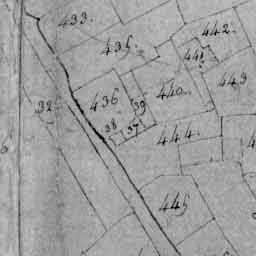 433.
442.
435.
441.
443
32
436
39
440.
38
37
444.
445